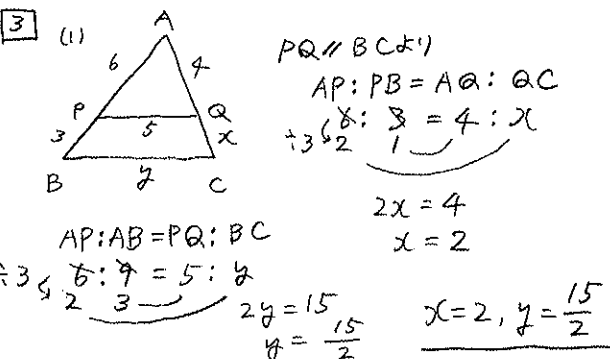 3 (1)
A
6 4
P Q
3 5 x
B y C
PQ // BCより
AP:PB=AQ:QC
6:3=4:x
÷3 2 1
2x=4
x=2
AP:AB=PQ:BC
÷3 6:9=5:y
2 3
2y=15
y=15/2
x=2, y=15/2